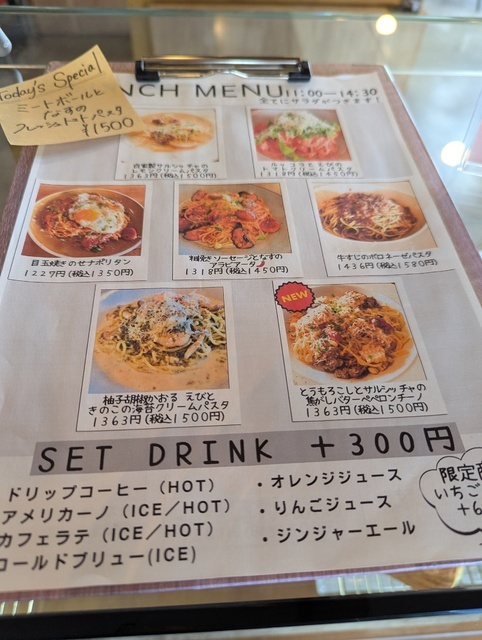 Today's Special
ミートボールと
なすの
フレッシュトマトパスタ
¥1500
NCH MENU 11:00-14:30
全てにサラダがつきます!
自家製サルシッチャの
レモンクリームパスタ
1363円(税込1500円)
ルッコラとえびの
トマトクリームパスタ
1318円(税込1450円)
目玉焼きのせナポリタン
1227円(税込1350円)
粗挽きソーセージとなすの
アラビアータ
1318円(税込1450円)
牛すじのボロネーゼパスタ
1436円(税込1580円)
柚子胡椒かおる えびと
きのこの海苔クリームパスタ
1363円(税込1500円)
NEW
とうもろこしとサルシッチャの
焦がしバターペペロンチーノ
1363円(税込1500円)
SET DRINK +300円
ドリップコーヒー(HOT)
アメリカーノ(ICE/HOT)
カフェラテ(ICE/HOT)
コールドブリュー(ICE)
・オレンジジュース
・りんごジュース
・ジンジャーエール
限定商
いちご
+6